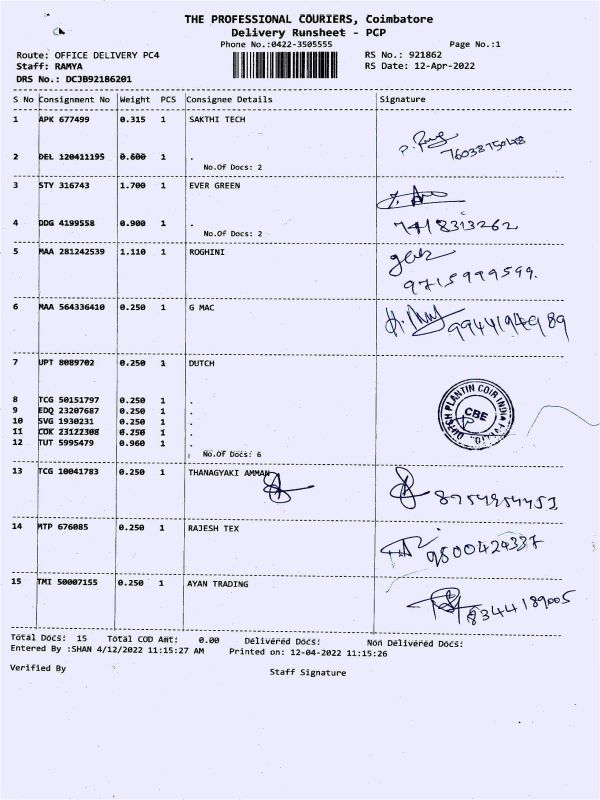 THE PROFESSIONAL COURIERS, Coimbatore
Delivery Runsheet - PCP
Phone No.:0422-3505555 Page No.:1
Route: OFFICE DELIVERY PC4 RS No.: 921862
Staff: RAMYA RS Date: 12-Apr-2022
DRS No.: DCJB92186201
S No Consignment No Weight PCS Consignee Details Signature
1 APK 677499 0.315 1 SAKTHI TECH
2 DEL 120411195 0.600 1 .
No.Of Docs: 2
3 STY 316743 1.700 1 EVER GREEN
4 DDG 4199558 0.900 1 .
7418313262
No.Of Docs: 2
5 MAA 281242539 1.110 1 ROGHINI
9715999599.
6 MAA 564336410 0.250 1 G MAC
7 UPT 8089702 0.250 1 DUTCH
8 TCG 50151797 0.250 1 .
9 EDQ 23207687 0.250 1 .
10 SVG 1930231 0.250 1 .
CBE
11 COK 23122308 0.250 1 .
12 TUT 5995479 0.960 1 .
No.Of Docs: 6
13 TCG 10041783 0.250 1 THANAGYAKI AMMAN
14 MTP 676085 0.250 1 RAJESH TEX
9500424337
15 TMI 50007155 0.250 1 AYAN TRADING
8344189005
Total Docs: 15 Total COD Amt: 0.00 Delivered Docs: Non Delivered Docs:
Entered By :SHAN 4/12/2022 11:15:27 AM Printed on: 12-04-2022 11:15:26
Verified By Staff Signature